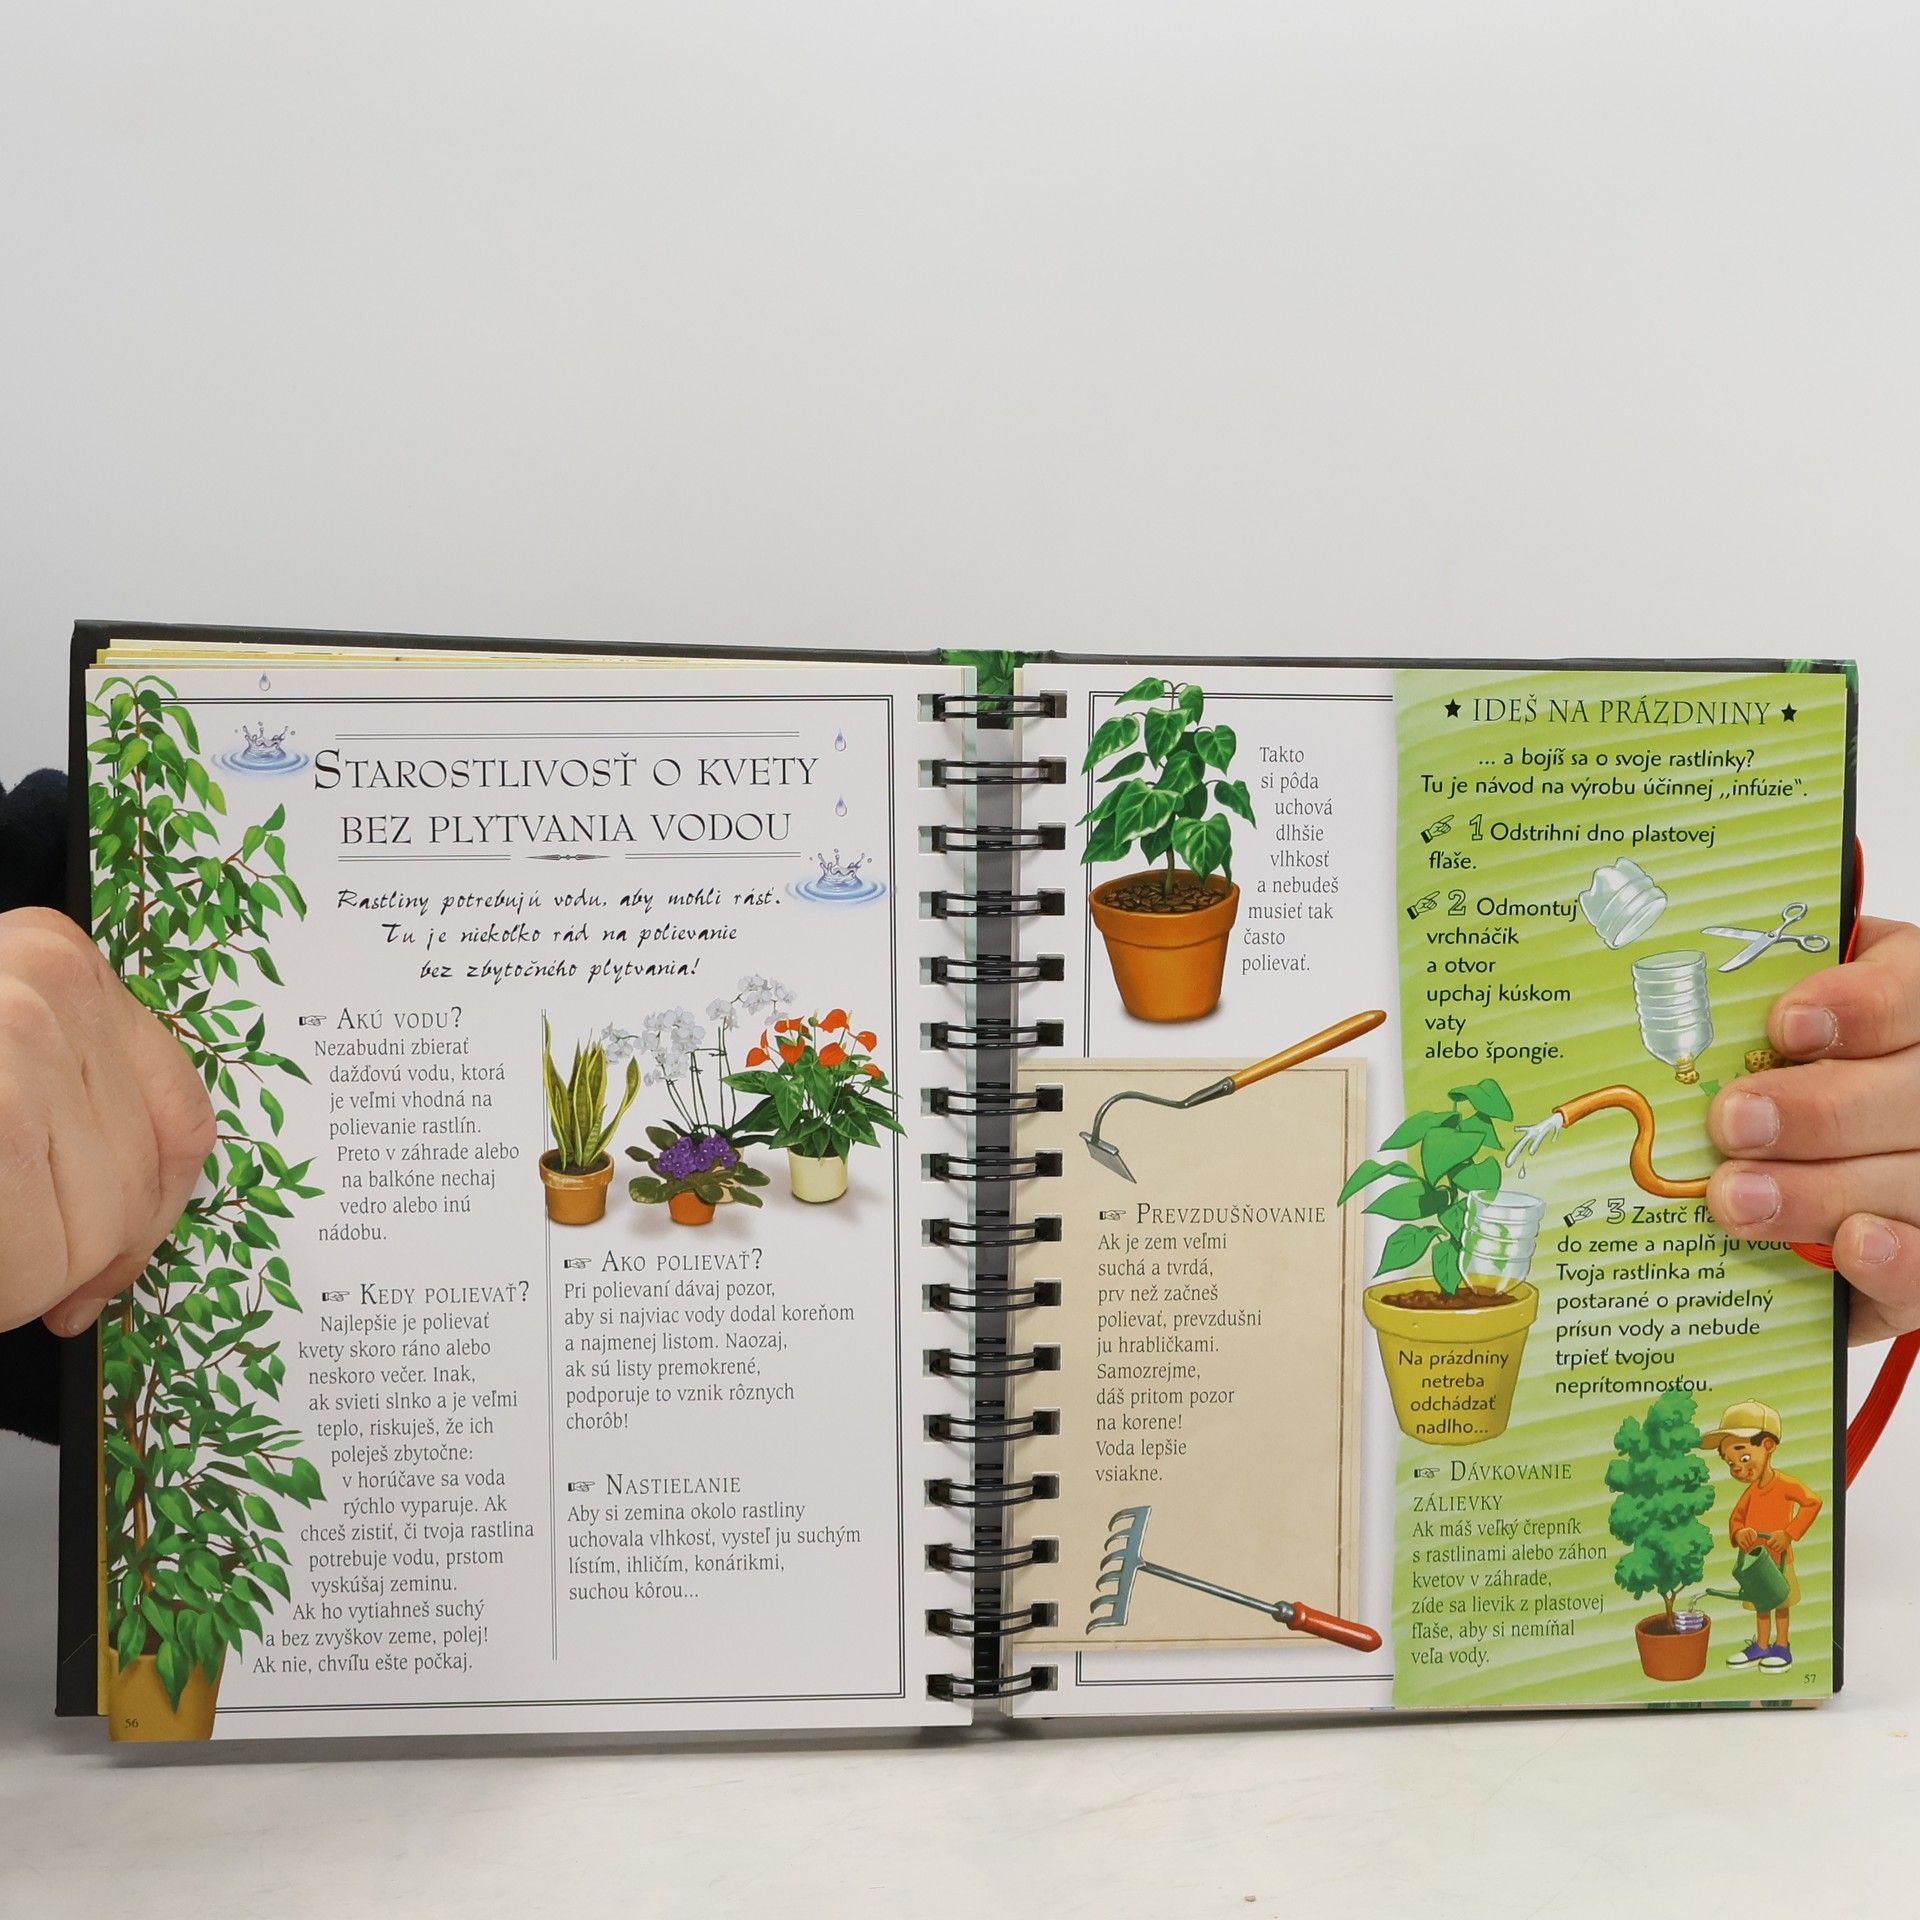 STAROSTLIVOSŤ O KVETY
BEZ PLYTVANIA VODOU
Rastliny potrebujú vodu, aby mohli rásť.
Tu je niekoľko rád na polievanie
bez zbytočného plytvania!
AKÚ VODU?
Nezabudni zbierať
dažďovú vodu, ktorá
je veľmi vhodná na
polievanie rastlín.
Preto v záhrade alebo
na balkóne nechaj
vedro alebo inú
nádobu.
KEDY POLIEVAŤ?
Najlepšie je polievať
kvety skoro ráno alebo
neskoro večer. Inak,
ak svieti slnko a je veľmi
teplo, riskuješ, že ich
poleješ zbytočne:
v horúčave sa voda
rýchlo vyparuje. Ak
chceš zistiť, či tvoja rastlina
potrebuje vodu, prstom
vyskúšaj zeminu.
Ak ho vytiahneš suchý
a bez zvyškov zeme, polej!
Ak nie, chvíľu ešte počkaj.
AKO POLIEVAŤ?
Pri polievaní dávaj pozor,
aby si najviac vody dodal koreňom
a najmenej listom. Naozaj,
ak sú listy premokrené,
podporuje to vznik rôznych
chorôb!
NASTIEĽANIE
Aby si zemina okolo rastliny
uchovala vlhkosť, vysteľ ju suchým
lístím, ihličím, konárikmi,
suchou kôrou...
56
Takto
si pôda
uchová
dlhšie
vlhkosť
a nebudeš
musieť tak
často
polievať.
PREVZDUŠŇOVANIE
Ak je zem veľmi
suchá a tvrdá,
prv než začneš
polievať, prevzdušni
ju hrabličkami.
Samozrejme,
dáš pritom pozor
na korene!
Voda lepšie
vsiakne.
★ IDEŠ NA PRÁZDNINY ★
... a bojíš sa o svoje rastlinky?
Tu je návod na výrobu účinnej „infúzie“.
1 Odstrihni dno plastovej
fľaše.
2 Odmontuj
vrchnáčik
a otvor
upchaj kúskom
vaty
alebo špongie.
3 Zastrč
do zeme a naplň ju
Tvoja rastlinka má
postarané o pravidelný
prísun vody a nebude
trpieť tvojou
neprítomnosťou.
Na prázdniny
netreba
odchádzať
nadlho...
DÁVKOVANIE
ZÁLIEVKY
Ak máš veľký črepník
s rastlinami alebo záhon
kvetov v záhrade,
zíde sa lievik z plastovej
fľaše, aby si nemíňal
veľa vody.
57